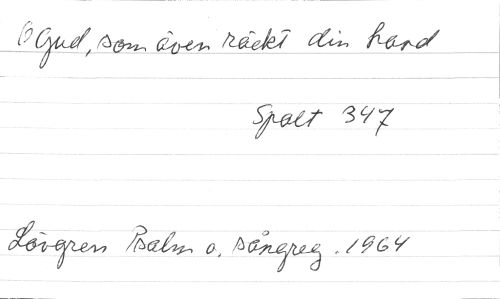 O Gud, som även räckt din hand
Spalt 347
Lövgren Psalm o. sångreg. 1964